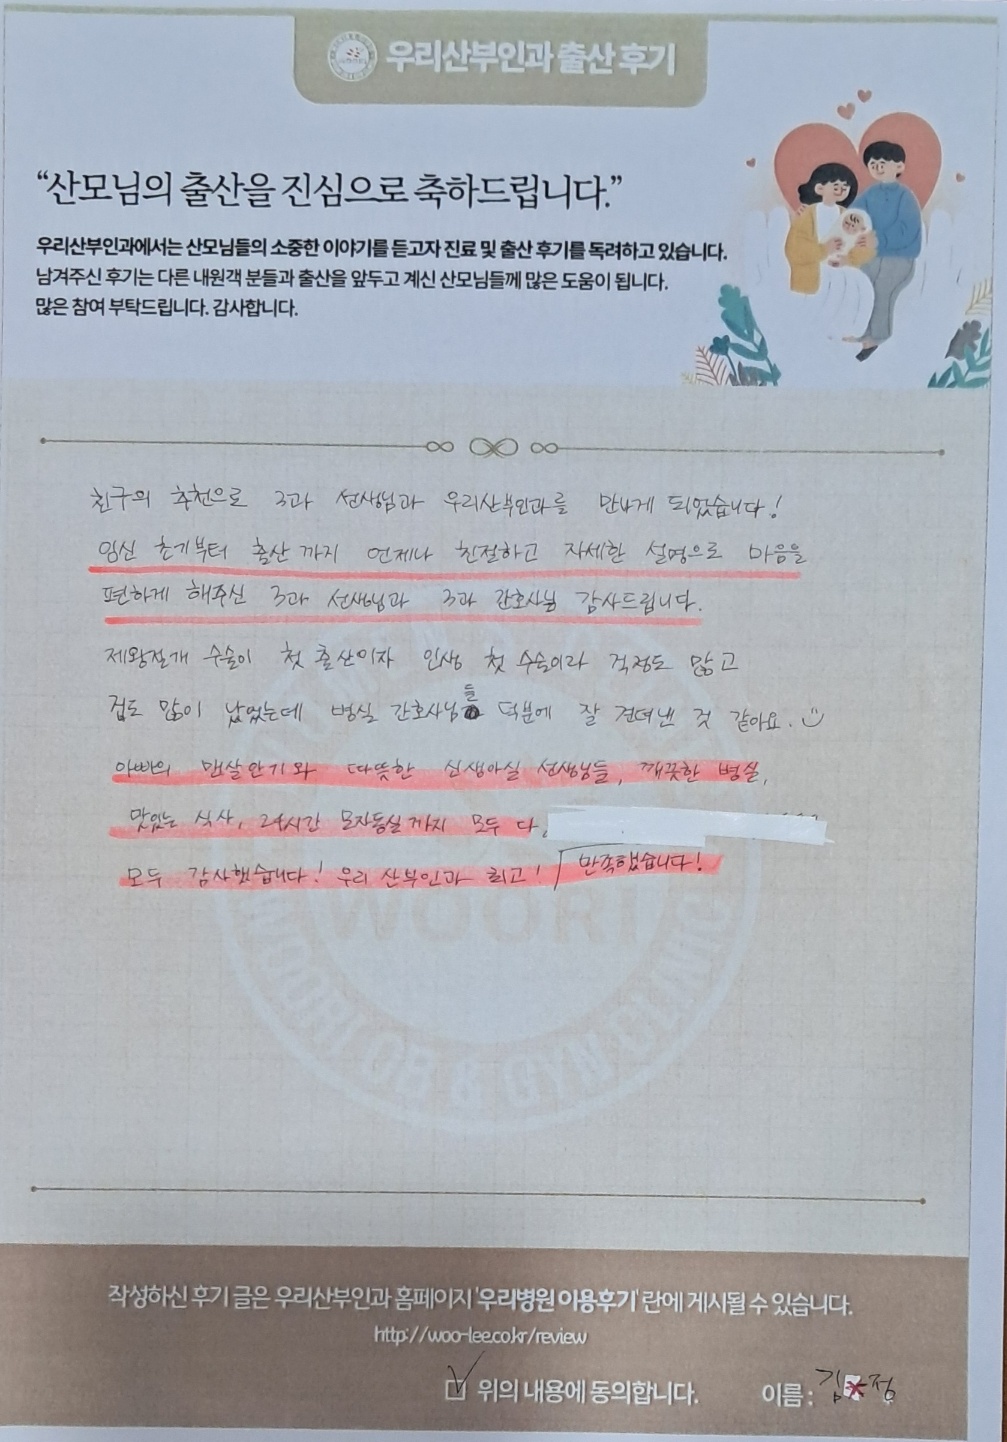 우리산부인과 출산 후기
“산모님의 출산을 진심으로 축하드립니다.”
우리산부인과에서는 산모님들의 소중한 이야기를 듣고자 진료 및 출산 후기를 독려하고 있습니다.
남겨주신 후기는 다른 내원객 분들과 출산을 앞두고 계신 산모님들께 많은 도움이 됩니다.
많은 참여 부탁드립니다. 감사합니다.
친구의 추천으로 3과 선생님과 우리산부인과를 만나게 되었습니다!
임신 초기부터 출산까지 언제나 친절하고 자세한 설명으로 마음을
편하게 해주신 3과 선생님과 3과 간호사님 감사드립니다.
제왕절개 수술이 첫 출산이자 인생 첫 수술이라 걱정도 많고
겁도 많이 났었는데 병실 간호사님들 덕분에 잘 견뎌낸 것 같아요.
아빠의 맨살안기와 따뜻한 신생아실 선생님들, 깨끗한 병실,
맛있는 식사, 24시간 모자동실까지 모두 다,
모두 감사했습니다! 우리 산부인과 최고! 만족했습니다!
WOORI
WOORI OB & GYN CLINIC
작성하신 후기 글은 우리산부인과 홈페이지 '우리병원 이용후기' 란에 게시될 수 있습니다.
http://woo-lee.co.kr/review
위의 내용에 동의합니다. 이름 : 김 정